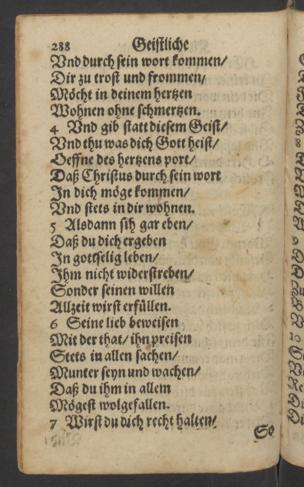 288 Geistliche
Vnd durch sein wort kommen/
Dir zu trost und frommen/
Möcht in deinem hertzen
Wohnen ohne schmertzen.
4 Vnd gib statt diesem Geist/
Vnd thu was dich Gott heist/
Oeffne des hertzens port/
Daß Christus durch sein wort
In dich möge kommen/
Vnd stets in dir wohnen.
5 Alsdann sih gar eben/
Daß du dich ergeben
In gottselig leben/
Ihm nicht widerstreben/
Sonder seinen willen
Allzeit wirst erfüllen.
6 Seine lieb beweisen
Mit der that/ ihn preisen
Stets in allen sachen/
Munter seyn und wachen/
Daß du ihm in allem
Mögest wolgefallen.
7 Wirst du dich recht halten/
So